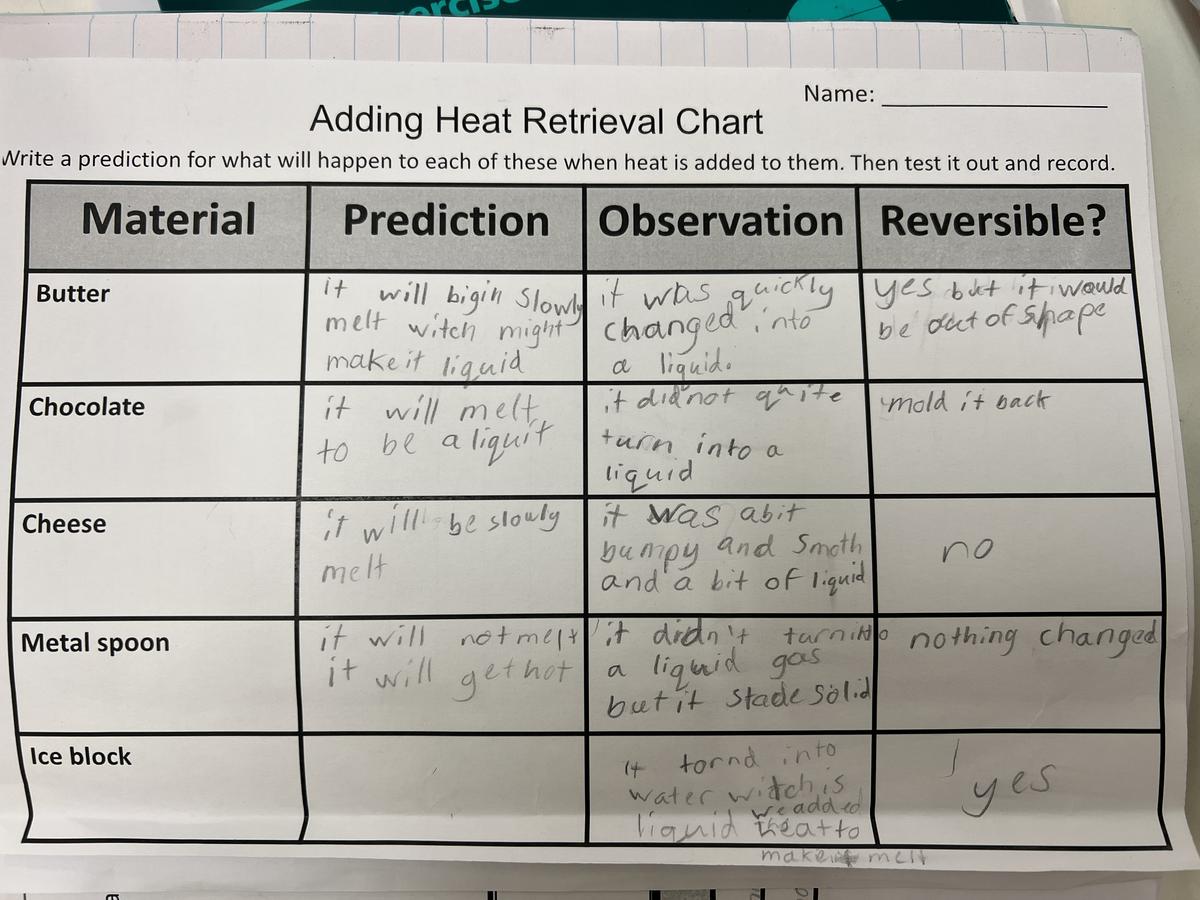 Name:
Adding Heat Retrieval Chart
Write a prediction for what will happen to each of these when heat is added to them. Then test it out and record.
Material
Prediction
Observation
Reversible?
Butter
it will bigin slowly
melt witch might
make it liquid
it was quickly
changed into
a liquid.
yes but it would
be out of shape
Chocolate
it will melt
to be a liquit
it did not quite
turn into a
liquid
mold it back
Cheese
it will be slowly
melt
it was abit
bumpy and smoth
and a bit of liquid
no
Metal spoon
it will not melt
it will get hot
it didn't turn into
a liquid gas
but it stade solid
nothing changed
Ice block
It tornd into
water witch is
we added
liquid heat to
make it melt
yes